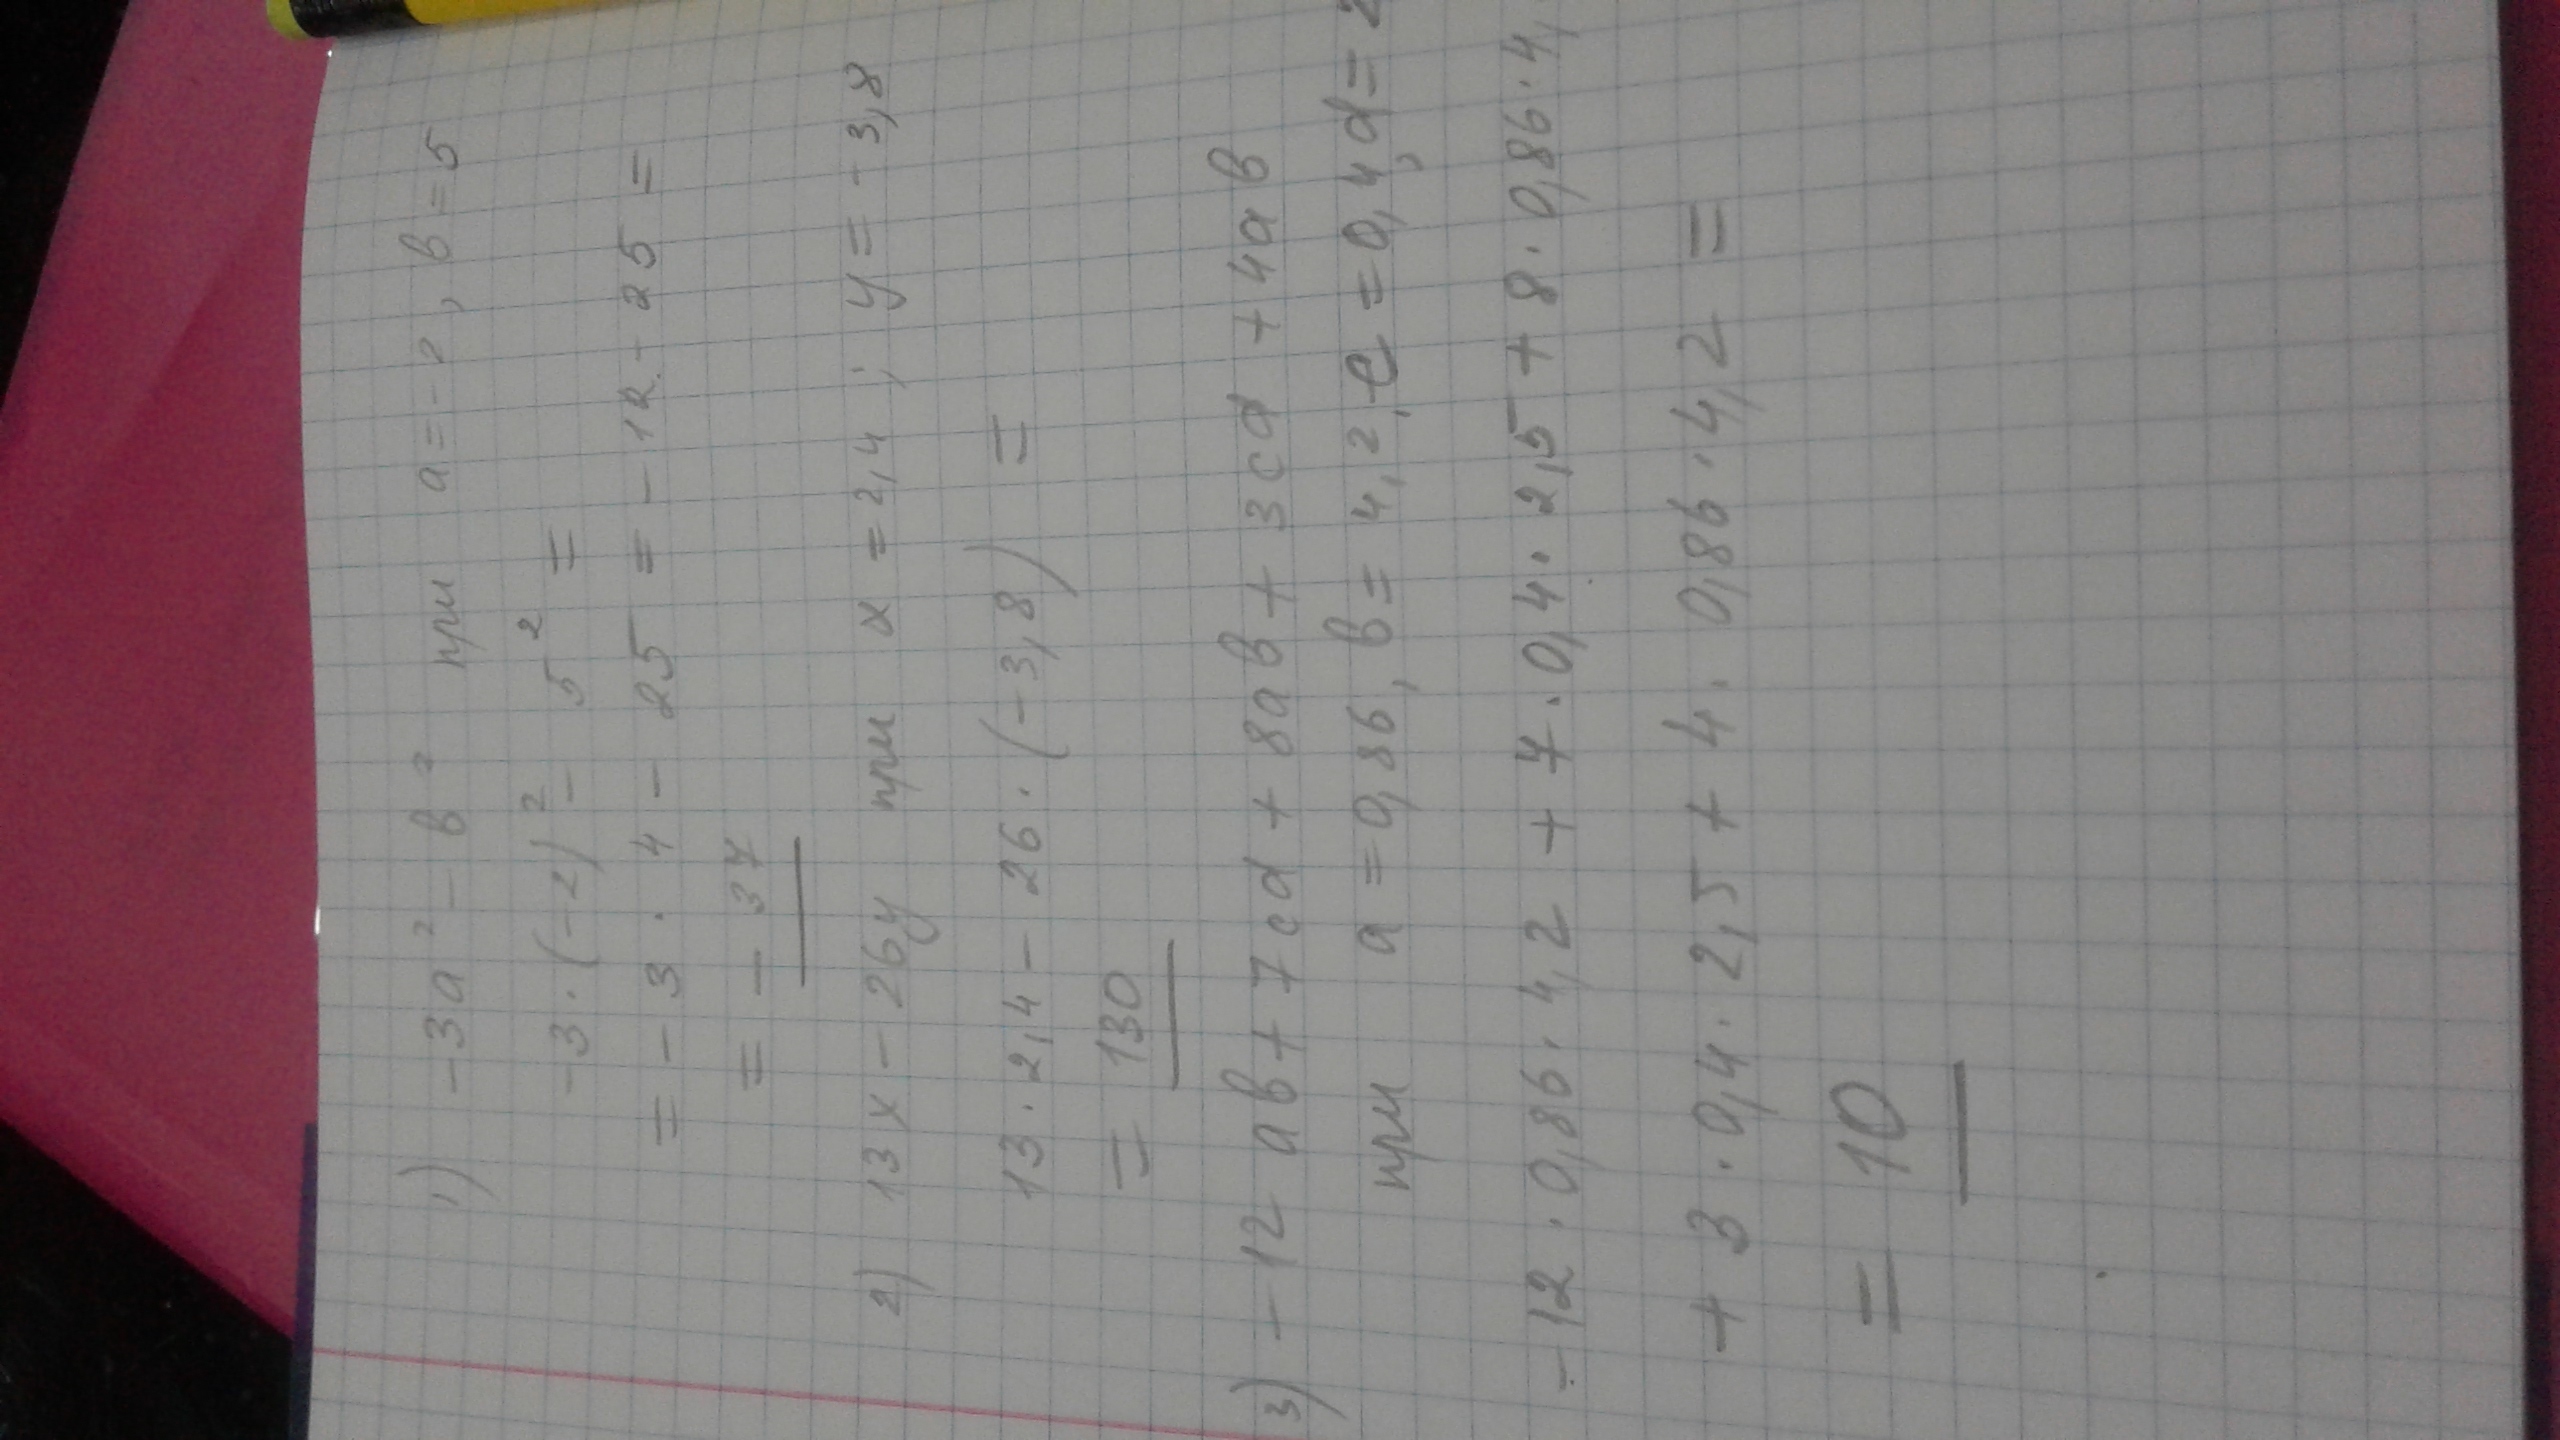 1) -3a² - в² при a = -2, в = 5
-3·(-2)² - 5² =
= -3 · 4 - 25 = -12 - 25 =
= - 37
2) 13x - 26y при x = 2,4 ; y = - 3,8
13 · 2,4 - 26 · (-3,8) =
= 130
3) - 12 aв + 7cd + 8aв + 3cd + 4aв
при a = 0,86, в = 4,2, c = 0,4, d = 2
-12 · 0,86 · 4,2 + 7 · 0,4 · 2,5 + 8 · 0,86 · 4,
+ 3 · 0,4 · 2,5 + 4 · 0,86 · 4,2 =
= 10